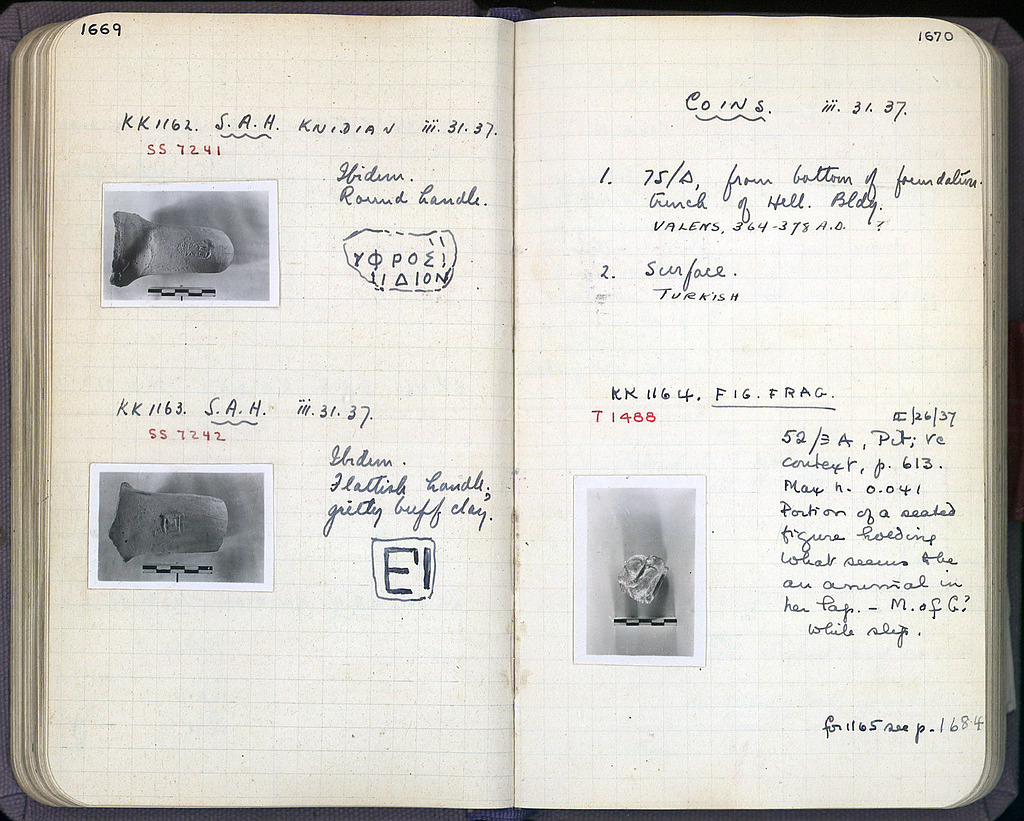 1669
KK 1162. S.A.H. KNIDIAN iii.31.37.
SS 7241
Ibidem.
Round handle.
ΥΦΡΟΣΙ
ΙΔΙΟΝ
KK 1163. S.A.H. iii.31.37.
SS 7242
Ibidem.
Flattish handle;
gritty buff clay.
ΕΙ
1670
COINS. iii.31.37.
1. 75/Δ, from bottom of foundation
trench of Hell. Bldg.
VALENS, 364-378 A.D. ?
2. Surface.
TURKISH
KK 1164. FIG. FRAG.
T 1488
II/26/37
52/Γ A, Pit; vc
context, p. 613.
Max h. 0.041
Portion of a seated
figure holding
what seems to be
an animal in
her lap. – M. of G?
White slip.
for 1165 see p. 1684